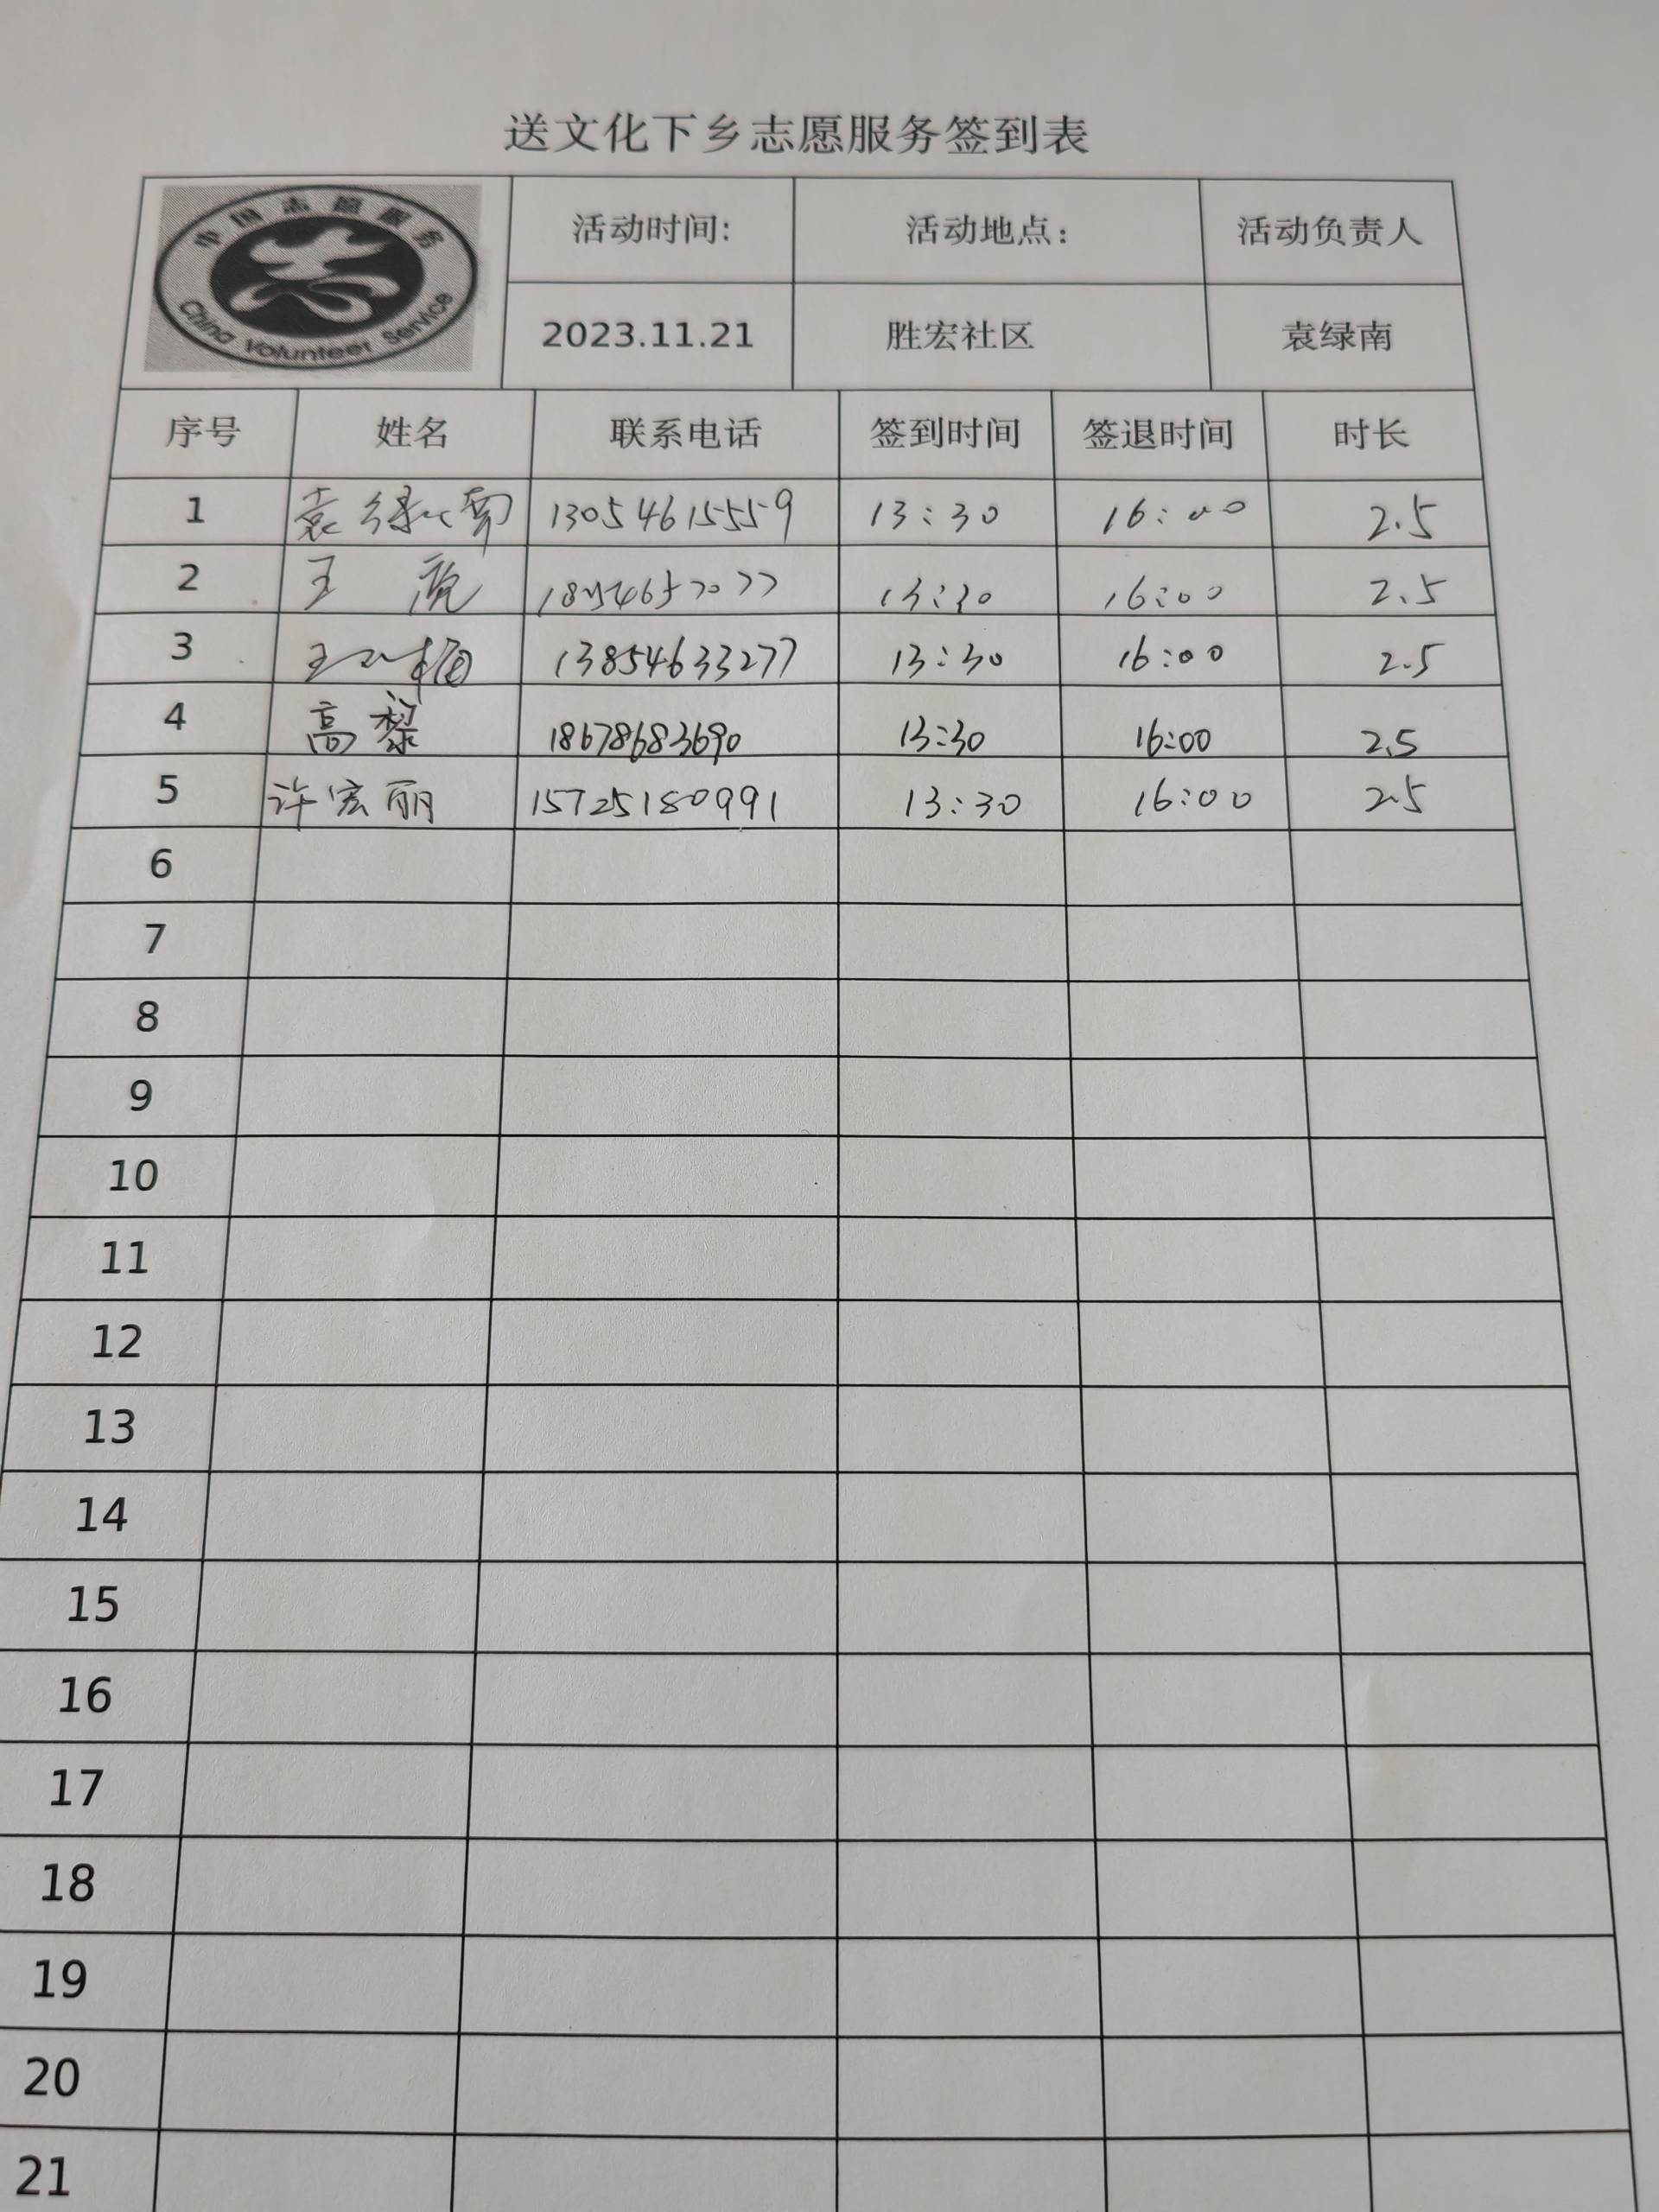 送文化下乡志愿服务签到表
中国志愿服务
China Volunteer Service
活动时间: 活动地点: 活动负责人
2023.11.21 胜宏社区 袁绿南
序号 姓名 联系电话 签到时间 签退时间 时长
1 袁绿南 13054615559 13:30 16:00 2.5
2 王 13:30 16:00 2.5
3 王 13854633277 13:30 16:00 2.5
4 高黎 18678683690 13:30 16:00 2.5
5 许宏丽 15725180991 13:30 16:00 2.5
6
7
8
9
10
11
12
13
14
15
16
17
18
19
20
21